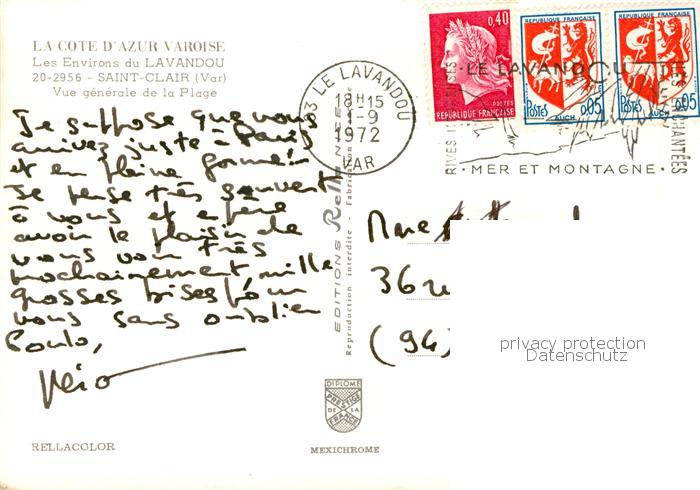 LA COTE D'AZUR VAROISE
Les Environs du LAVANDOU
20-2956 - SAINT-CLAIR (Var)
Vue générale de la Plage
Je suppose que vous
arrivez juste à Paris
et en pleine forme
Je pense très souvent
à vous et espère
avoir le plaisir de
vous voir très
prochainement, mille
grosses bises pour
vous sans oublier
Poulo,
RELLACOLOR
83 LE LAVANDOU
18H15
1-9
1972
VAR
EDITIONS Rella
Reproduction interdite - Fabrication
DIPLÔME
PRESTIGE
DE LA
FRANCE
MEXICHROME
0,40
POSTES
REPUBLIQUE FRANÇAISE
REPUBLIQUE FRANÇAISE
POSTES
0,05
AUCH
REPUBLIQUE FRANÇAISE
POSTES
0,05
AUCH
LE LAVANDOU
RIVES
CHANTÉES
· MER ET MONTAGNE ·
Mme
36
(94)
privacy protection
Datenschutz